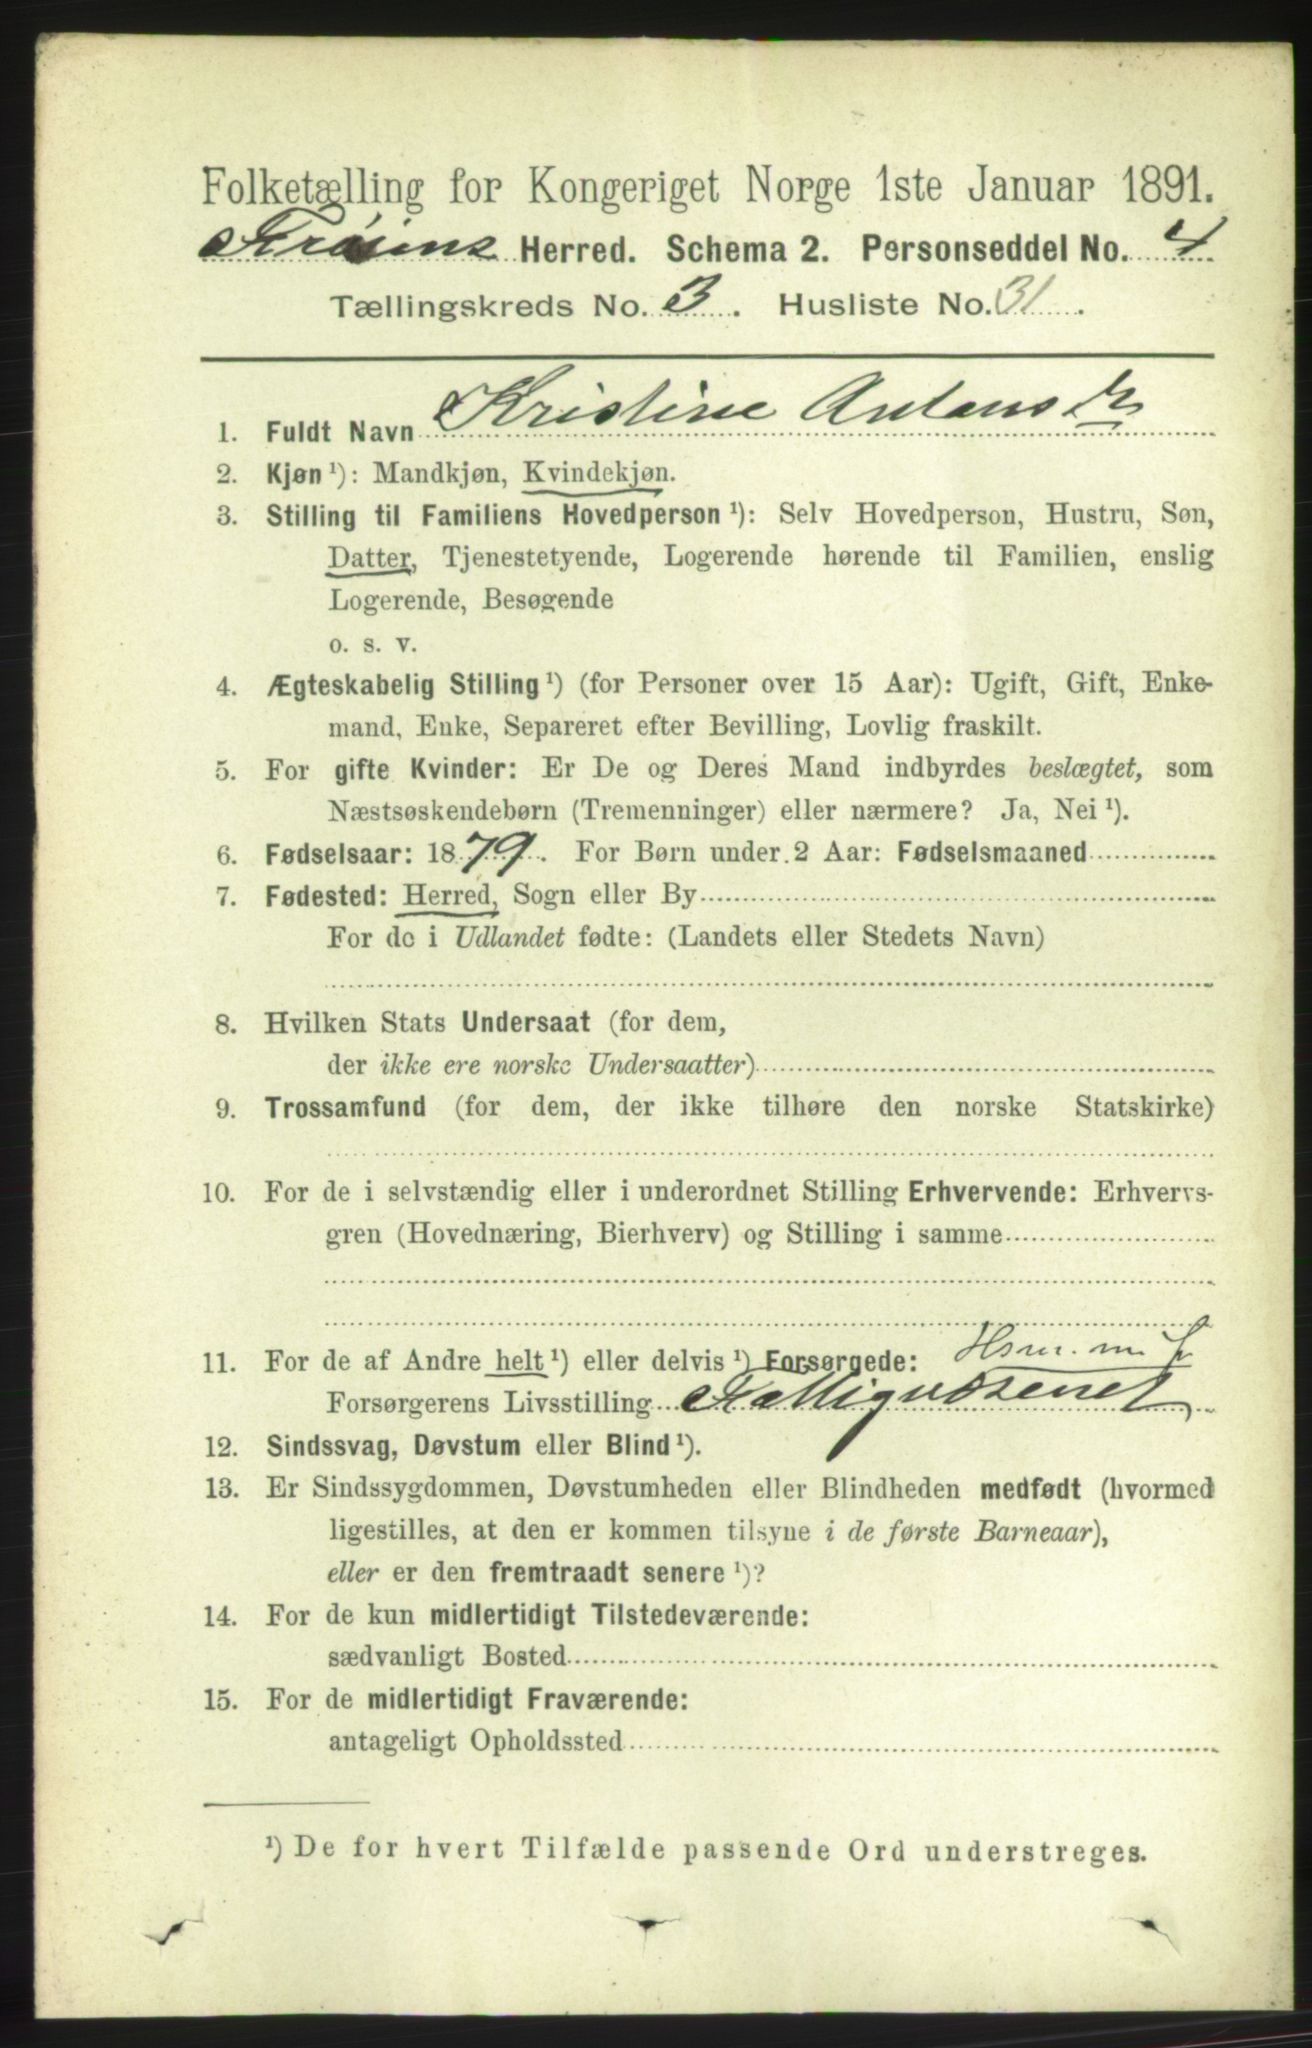 Folketælling for Kongeriget Norge 1ste Januar 1891.
Herred. Schema 2. Personseddel No. 4
Tællingskreds No. 3. Husliste No. 31.
1. Fuldt Navn Kristine Antons dr
2. Kjøn ¹): Mandkjøn, Kvindekjøn.
3. Stilling til Familiens Hovedperson ¹): Selv Hovedperson, Hustru, Søn,
Datter, Tjenestetyende, Logerende hørende til Familien, enslig
Logerende, Besøgende
o. s. v.
4. Ægteskabelig Stilling ¹) (for Personer over 15 Aar): Ugift, Gift, Enke-
mand, Enke, Separeret efter Bevilling, Lovlig fraskilt.
5. For gifte Kvinder: Er De og Deres Mand indbyrdes beslægtet, som
Næstsøskendebørn (Tremenninger) eller nærmere? Ja, Nei ¹).
6. Fødselsaar: 1879. For Børn under 2 Aar: Fødselsmaaned
7. Fødested: Herred, Sogn eller By
For de i Udlandet fødte: (Landets eller Stedets Navn)
8. Hvilken Stats Undersaat (for dem,
der ikke ere norske Undersaatter)
9. Trossamfund (for dem, der ikke tilhøre den norske Statskirke)
10. For de i selvstændig eller i underordnet Stilling Erhvervende: Erhvervs-
gren (Hovednæring, Bierhverv) og Stilling i samme
11. For de af Andre helt ¹) eller delvis ¹) Forsørgede: Hsm. m. J
Forsørgerens Livsstilling
12. Sindssvag, Døvstum eller Blind ¹).
13. Er Sindssygdommen, Døvstumheden eller Blindheden medfødt (hvormed
ligestilles, at den er kommen tilsyne i de første Barneaar),
eller er den fremtraadt senere ¹)?
14. For de kun midlertidigt Tilstedeværende:
sædvanligt Bosted
15. For de midlertidigt Fraværende:
antageligt Opholdssted
¹) De for hvert Tilfælde passende Ord understreges.